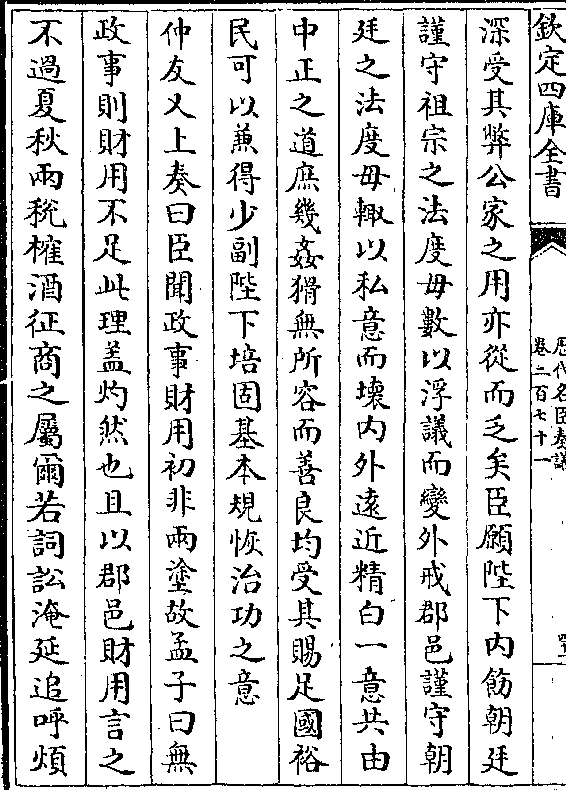 欽定四庫全書
歷代名臣奏議
卷二百七十一
深受其弊公家之用亦從而乏矣臣願陛下内飭朝廷
謹守祖宗之法度毋數以浮議而變外戒郡邑謹守朝
廷之法度毋輙以私意而壊内外逺近精白一意共由
中正之道庶幾姦猾無所容而善良均受其賜足國裕
民可以兼得少副陛下培固基本規恢治功之意
仲友又上奏曰臣聞政事財用初非兩塗故孟子曰無
政事則財用不足此理盖灼然也且以郡邑財用言之
不過夏秋兩稅榷酒征商之屬爾若詞訟淹延追呼煩